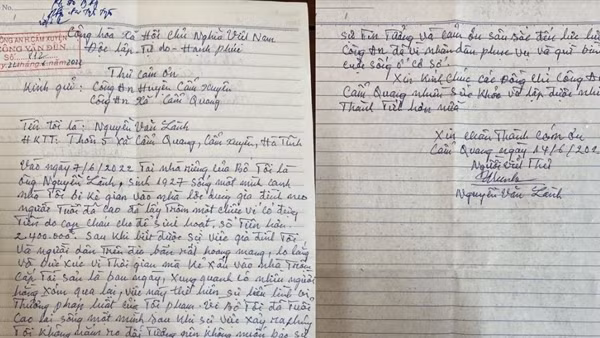 No.
CÔNG AN H. CẨM XUYÊN
CÔNG VĂN ĐẾN
Số
Cộng hòa Xã Hội Chủ Nghĩa Việt Nam
Độc Lập Tự do - Hạnh phúc
Thư Cảm ơn
Kính gửi: Công An Huyện Cẩm Xuyên
Công An Xã Cẩm Quang
Tên tôi là: Nguyễn Văn Lành
HKTT: Thôn 5 xã Cẩm Quang, Cẩm Xuyên, Hà Tĩnh
Vào ngày 7/6/2022 Tại nhà riêng của Bố Tôi là
ông Nguyễn Lành, sinh 1927 sống một mình cạnh
nhà Tôi bị kẻ gian vào nhà lợi dụng gia đình neo
người Tuổi đã cao đã lấy trộm một chiếc ví có đựng
Tiền do con cháu cho để sinh hoạt, số Tiền hơn
2.400.000đ. Sau khi biết được sự việc gia đình Tôi
Và người dân Trên địa bàn rất hoang mang, lo lắng
và bức xúc vì Thời gian mà kẻ xấu vào nhà Trộm
Cắp Tài sản là ban ngày, xung quanh có nhiều người
hàng xóm qua lại, việc này thể hiện sự liều lĩnh coi
Thường pháp luật của Tội phạm. Vì Bố Tôi đã Tuổi
Cao lại sống một mình sau khi sự việc xảy ra
Tôi không nên không muốn báo sự
No.
sự Tin Tưởng và cảm ơn sâu sắc đến lực
Công An đã vì nhân dân phục vụ và giữ
cuộc sống ở cơ sở.
Xin kính chúc các Đồng chí Công An
Cẩm Quang nhiều sức khỏe và lập được nhiều
Thành Tích hơn nữa
Xin chân Thành cảm ơn
Cẩm Quang ngày 14/6/202
Người viết Thư
Nguyễn Văn Lành